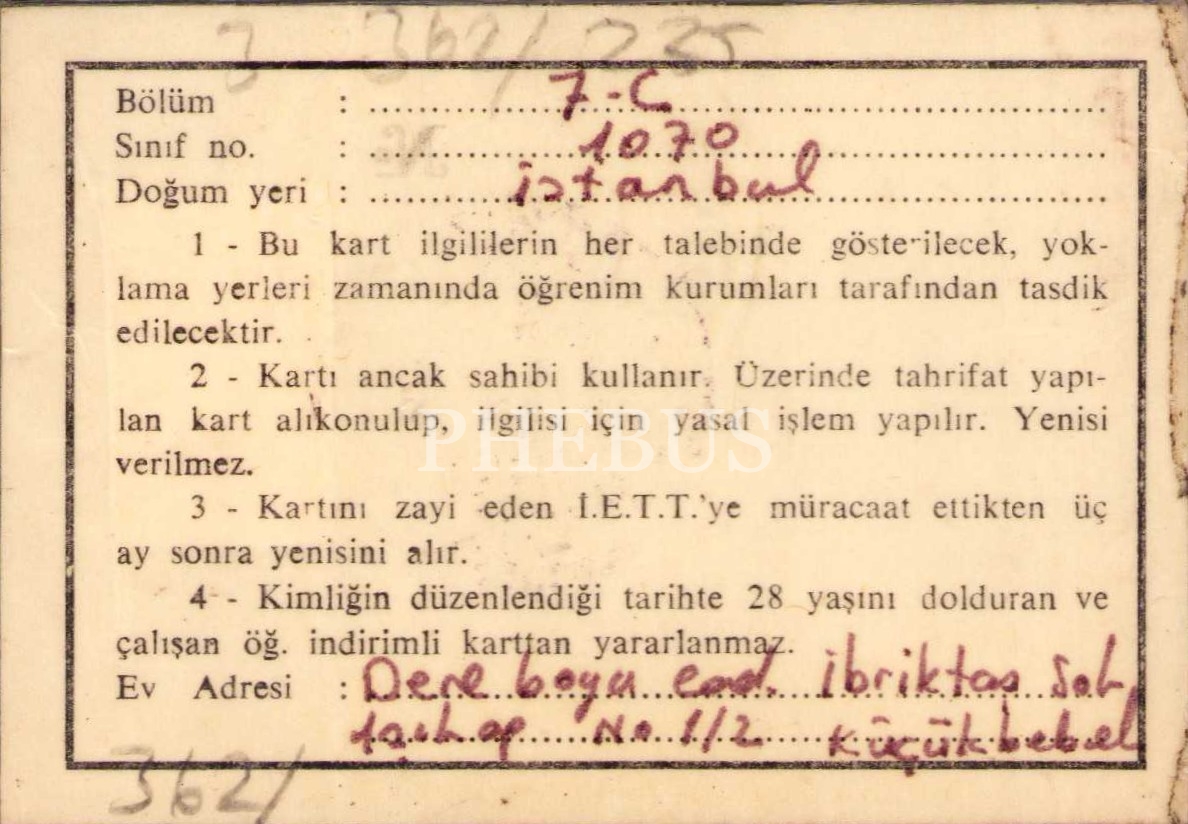 3 362/ 235
Bölüm : 7-C
Sınıf no. : 1070
Doğum yeri : istanbul
1 - Bu kart ilgililerin her talebinde gösterilecek, yok-
lama yerleri zamanında öğrenim kurumları tarafından tasdik
edilecektir.
2 - Kartı ancak sahibi kullanır. Üzerinde tahrifat yapı-
lan kart alıkonulup, ilgilisi için yasal işlem yapılır. Yenisi
verilmez.
PHEBUS
3 - Kartını zayi eden İ.E.T.T.'ye müracaat ettikten üç
ay sonra yenisini alır.
4 - Kimliğin düzenlendiği tarihte 28 yaşını dolduran ve
çalışan öğ. indirimli karttan yararlanmaz.
Ev Adresi : Dere boyu cad. İbriktas Sok
No 1/2 Küçükbebek
362/